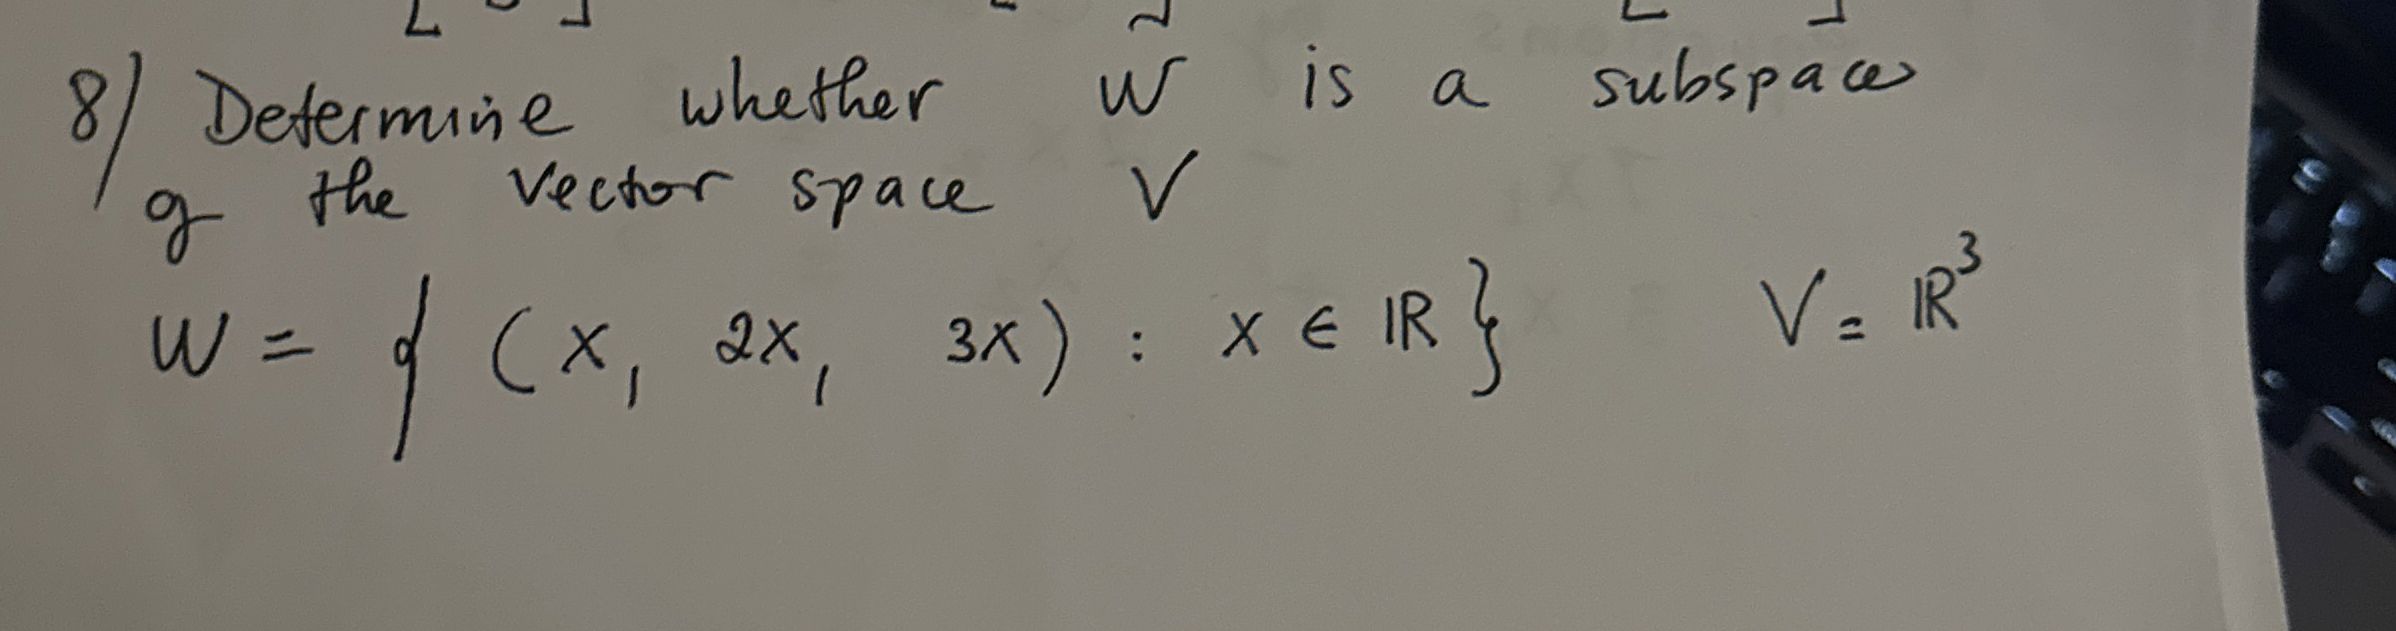 8/ Determine whether W is a subspace
of the vector space V
W = { (x, 2x, 3x) : x ∈ ℝ } V = ℝ³